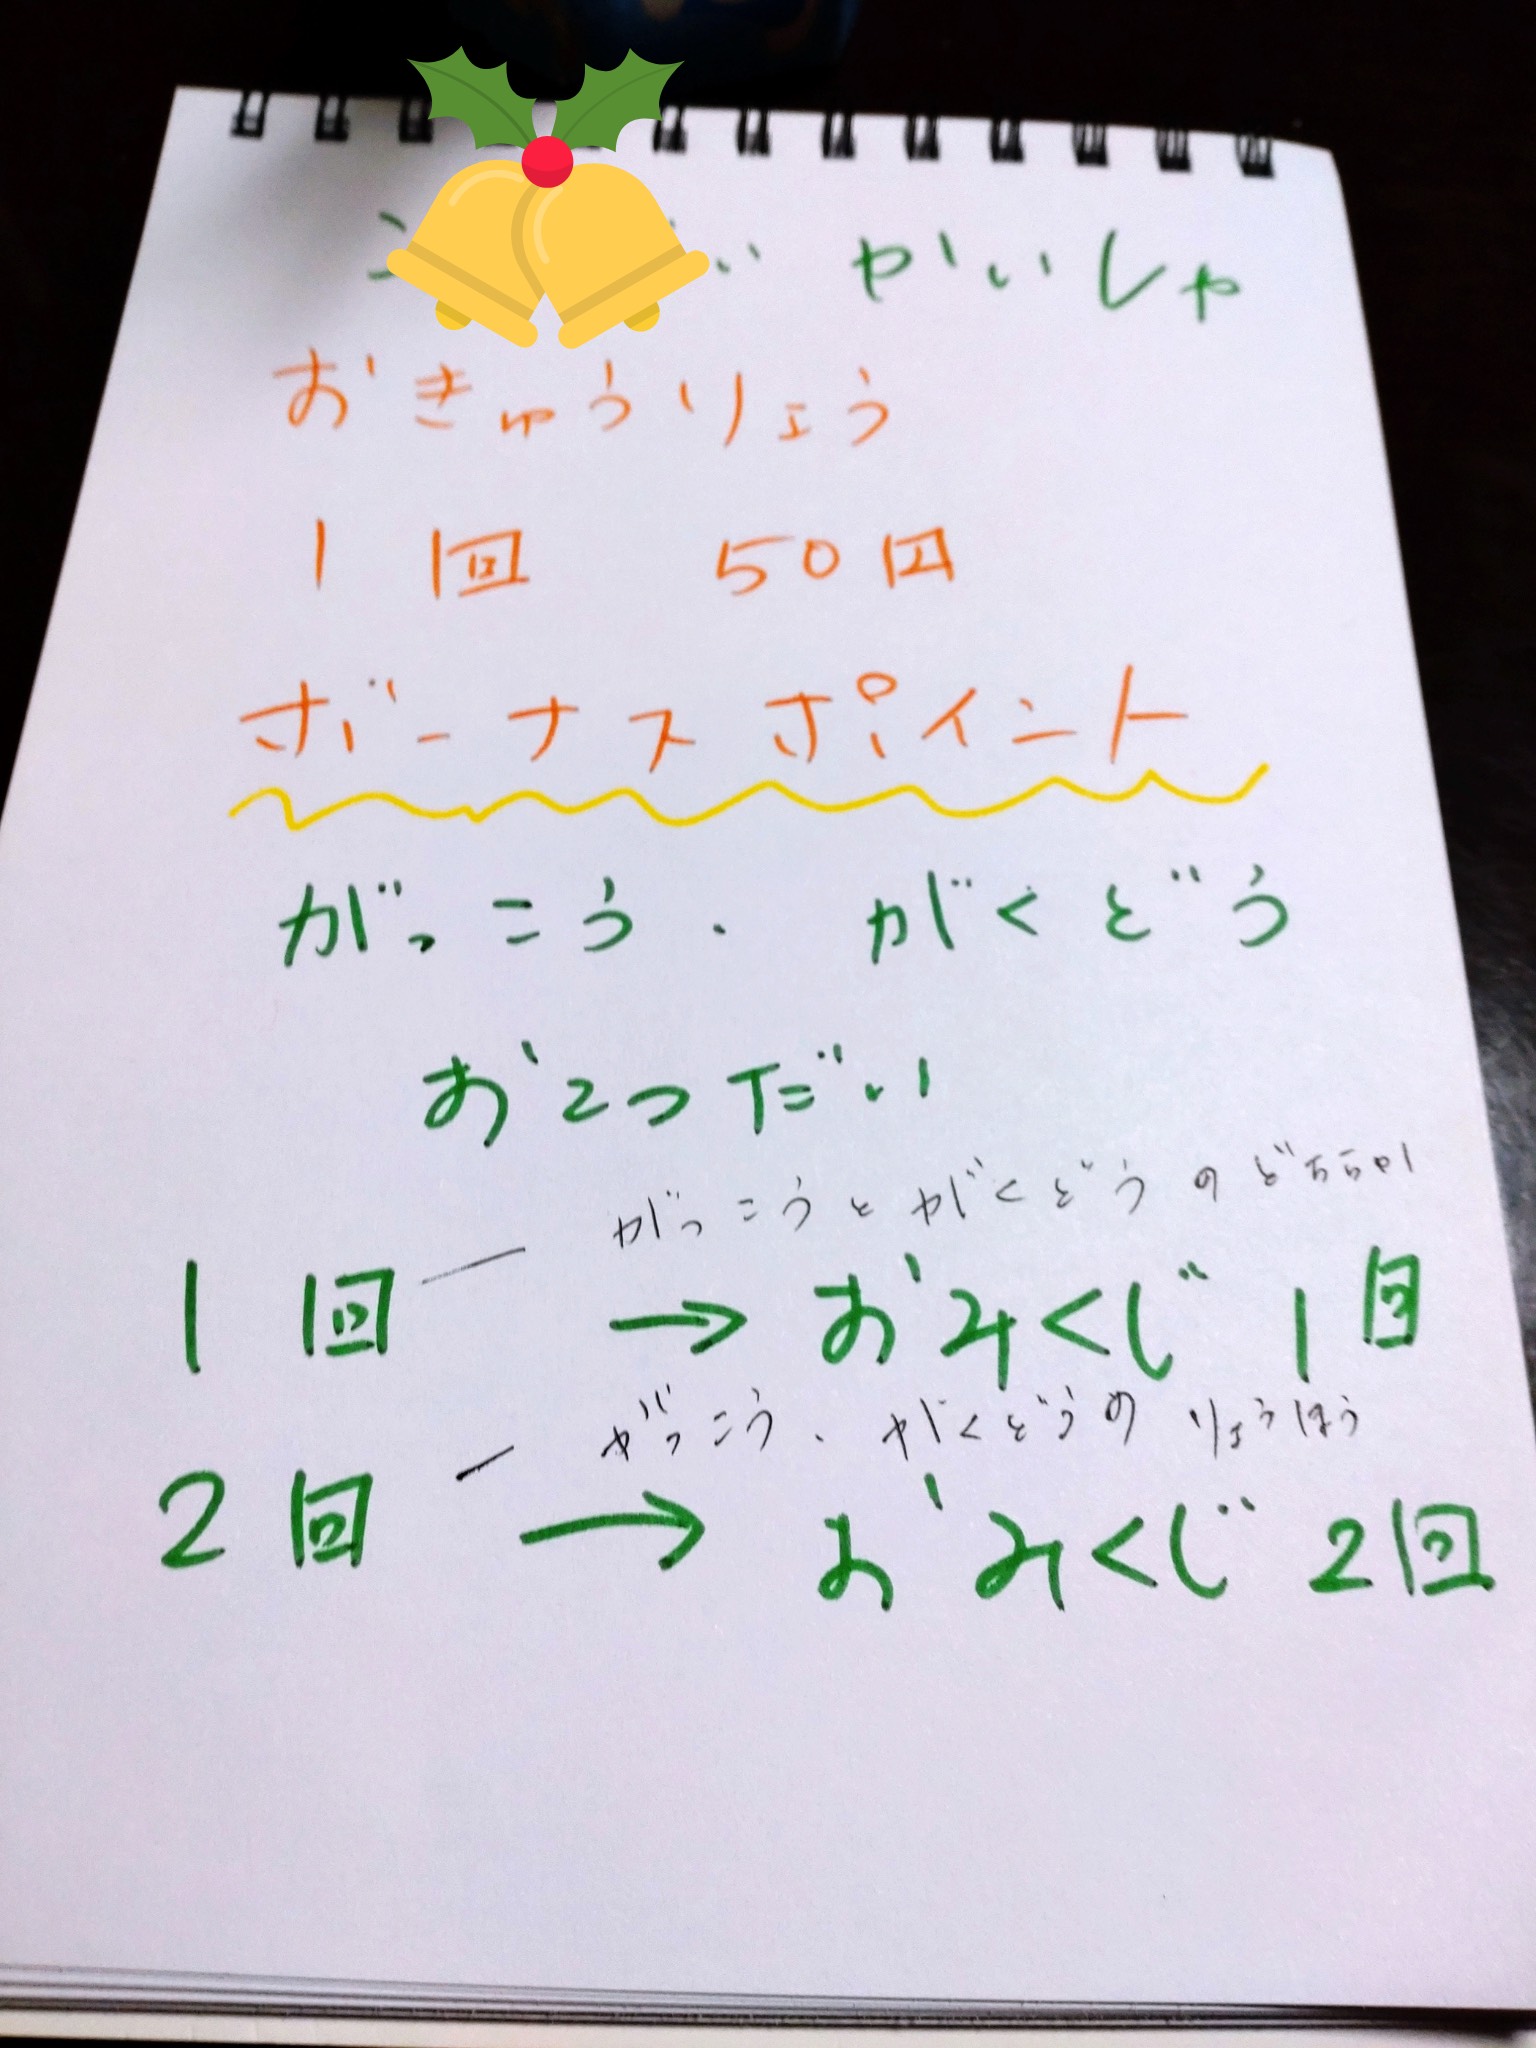 かいしゃ
おきゅうりょう
1回 50回
ボーナスポイント
がっこう、がくどう
おてつだい
がっこうとがくどうのどちらか
1回 → おみくじ 1回
がっこう、がくどうのりょうほう
2回 → おみくじ 2回